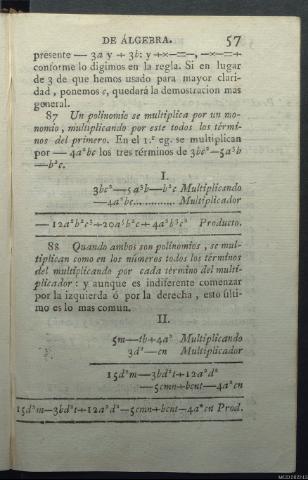 DE ÁLGEBRA. 57
presente — 3a y + 3b: y +×—=—, —×—=+
conforme lo digimos en la regla. Si en lugar
de 3 de que hemos usado para mayor clari-
dad, ponemos c, quedará la demostracion mas
general.
87 Un polinomio se multiplica por un mo-
nomio, multiplicando por este todos los térmi-
nos del primero. En el 1.º eg. se multiplican
por — 4a²bc los tres términos de 3bc²—5a³b
—b²c.
I.
3bc²—5a³b—b²c Multiplicando
—4a²bc............. Multiplicador
— 12a²b²c³+20a⁵b²c+4a²b³c² Producto.
88 Quando ambos son polinomios, se mul-
tiplican como en los números todos los términos
del multiplicando por cada término del multi-
plicador: y aunque es indiferente comenzar
por la izquierda ó por la derecha, esto últi-
mo es lo mas comun.
II.
5m—tb+4a² Multiplicando
3d²—cn Multiplicador
15d²m—3bd²t+12a²d²
—5cmn+bcnt—4a²cn
15d²m—3bd²t+12a²d²—5cmn+bcnt—4a²cn Prod.